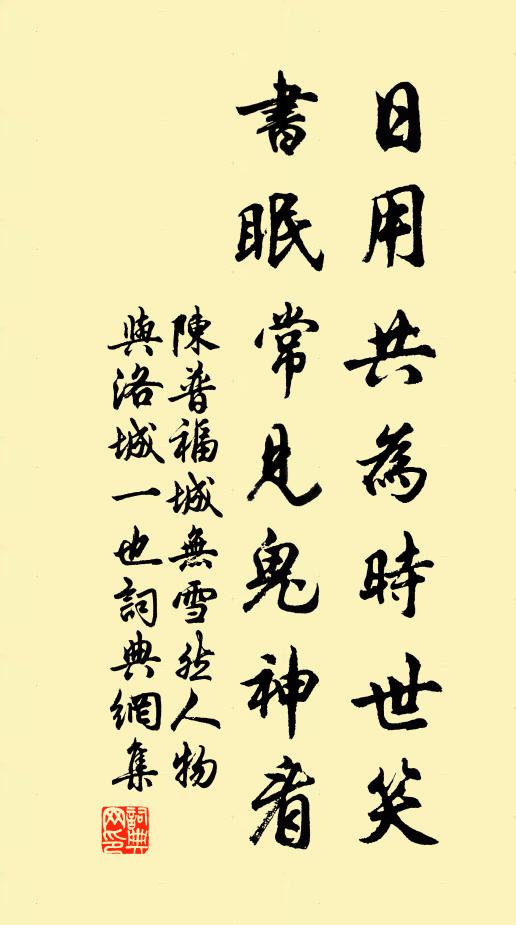 日用共為時世笑
書眠常見鬼神看
陳普福城無雪然人物
與洛城一也詞典網集
詞典
网印